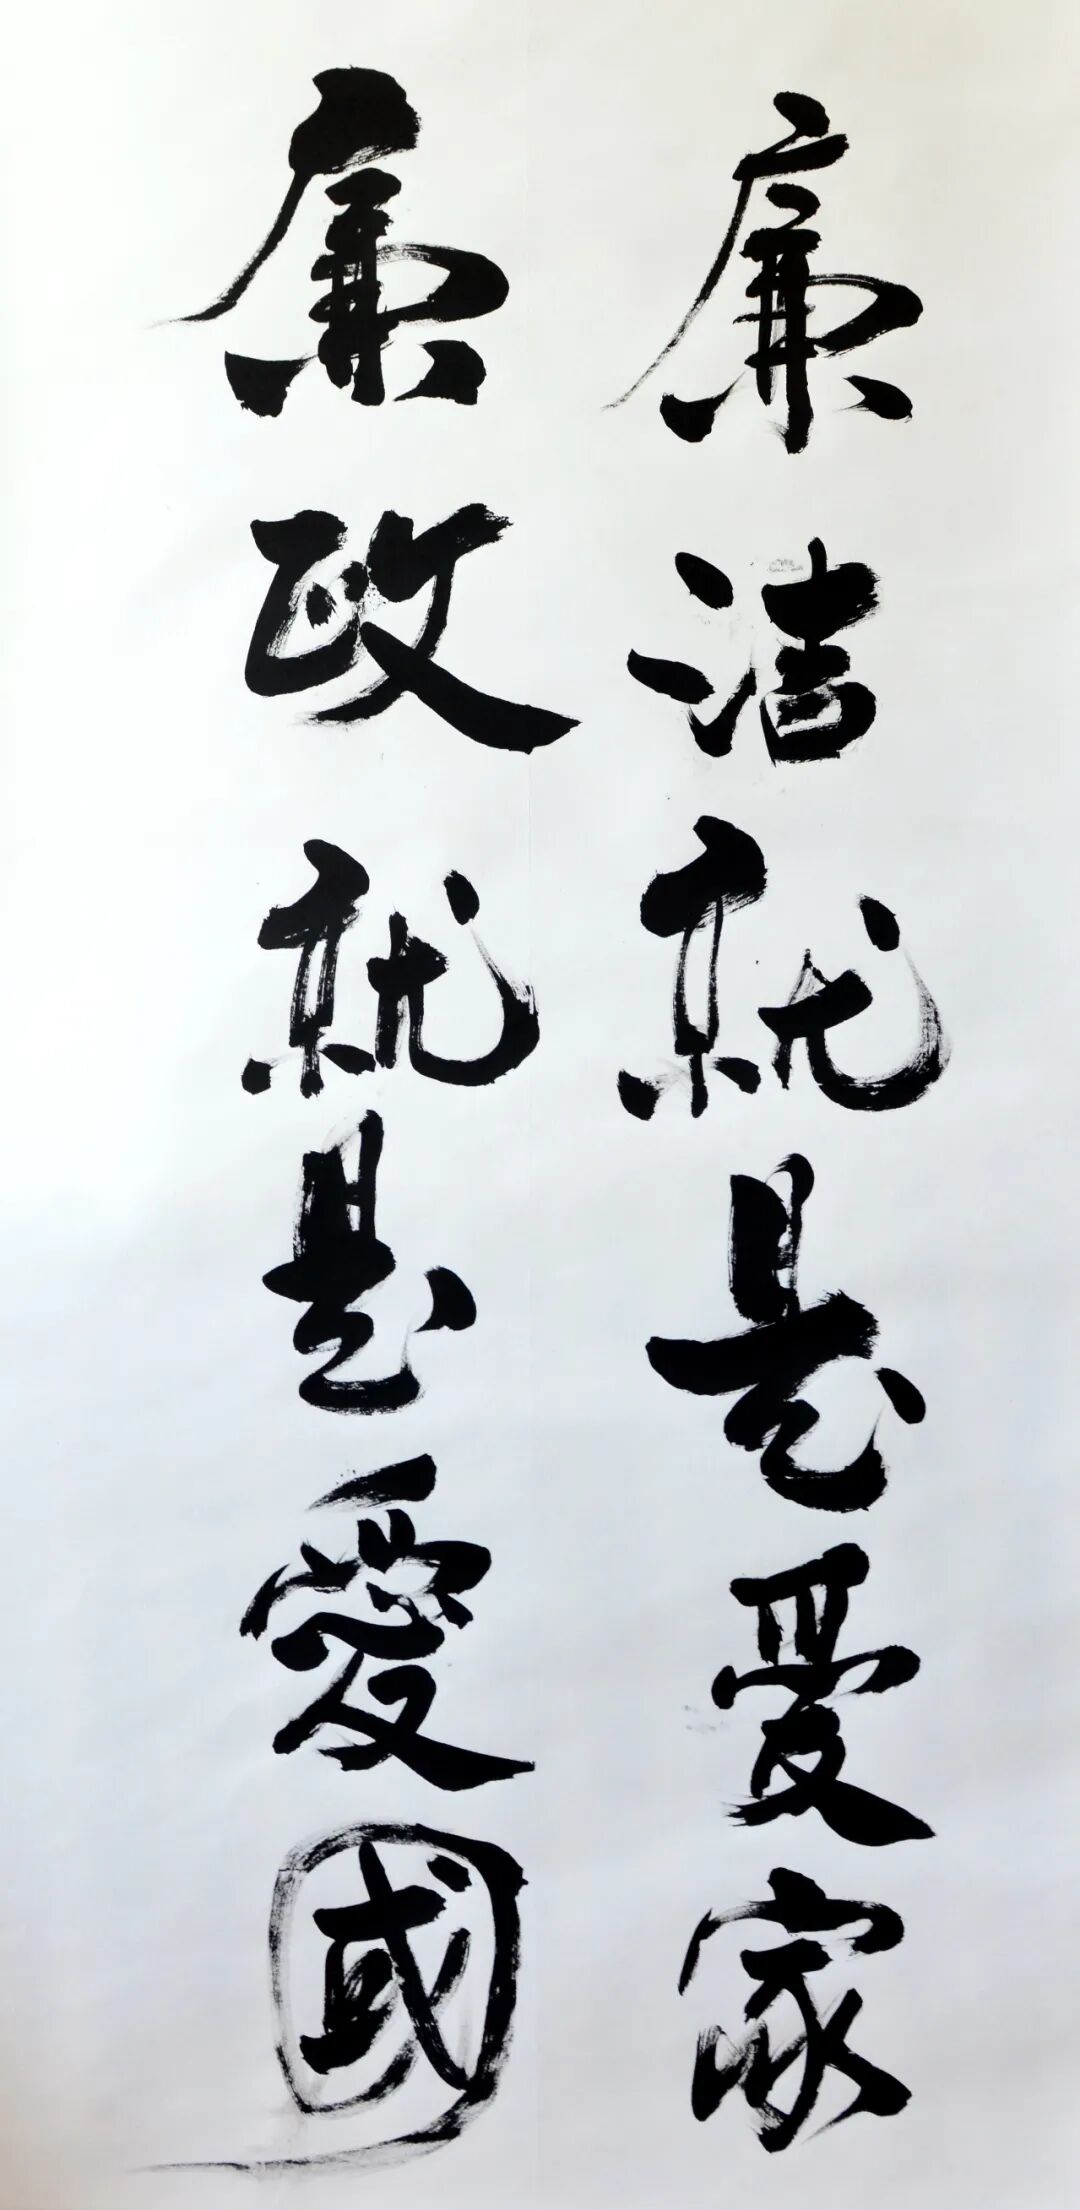 廉洁就是愛家
廉政就是愛國